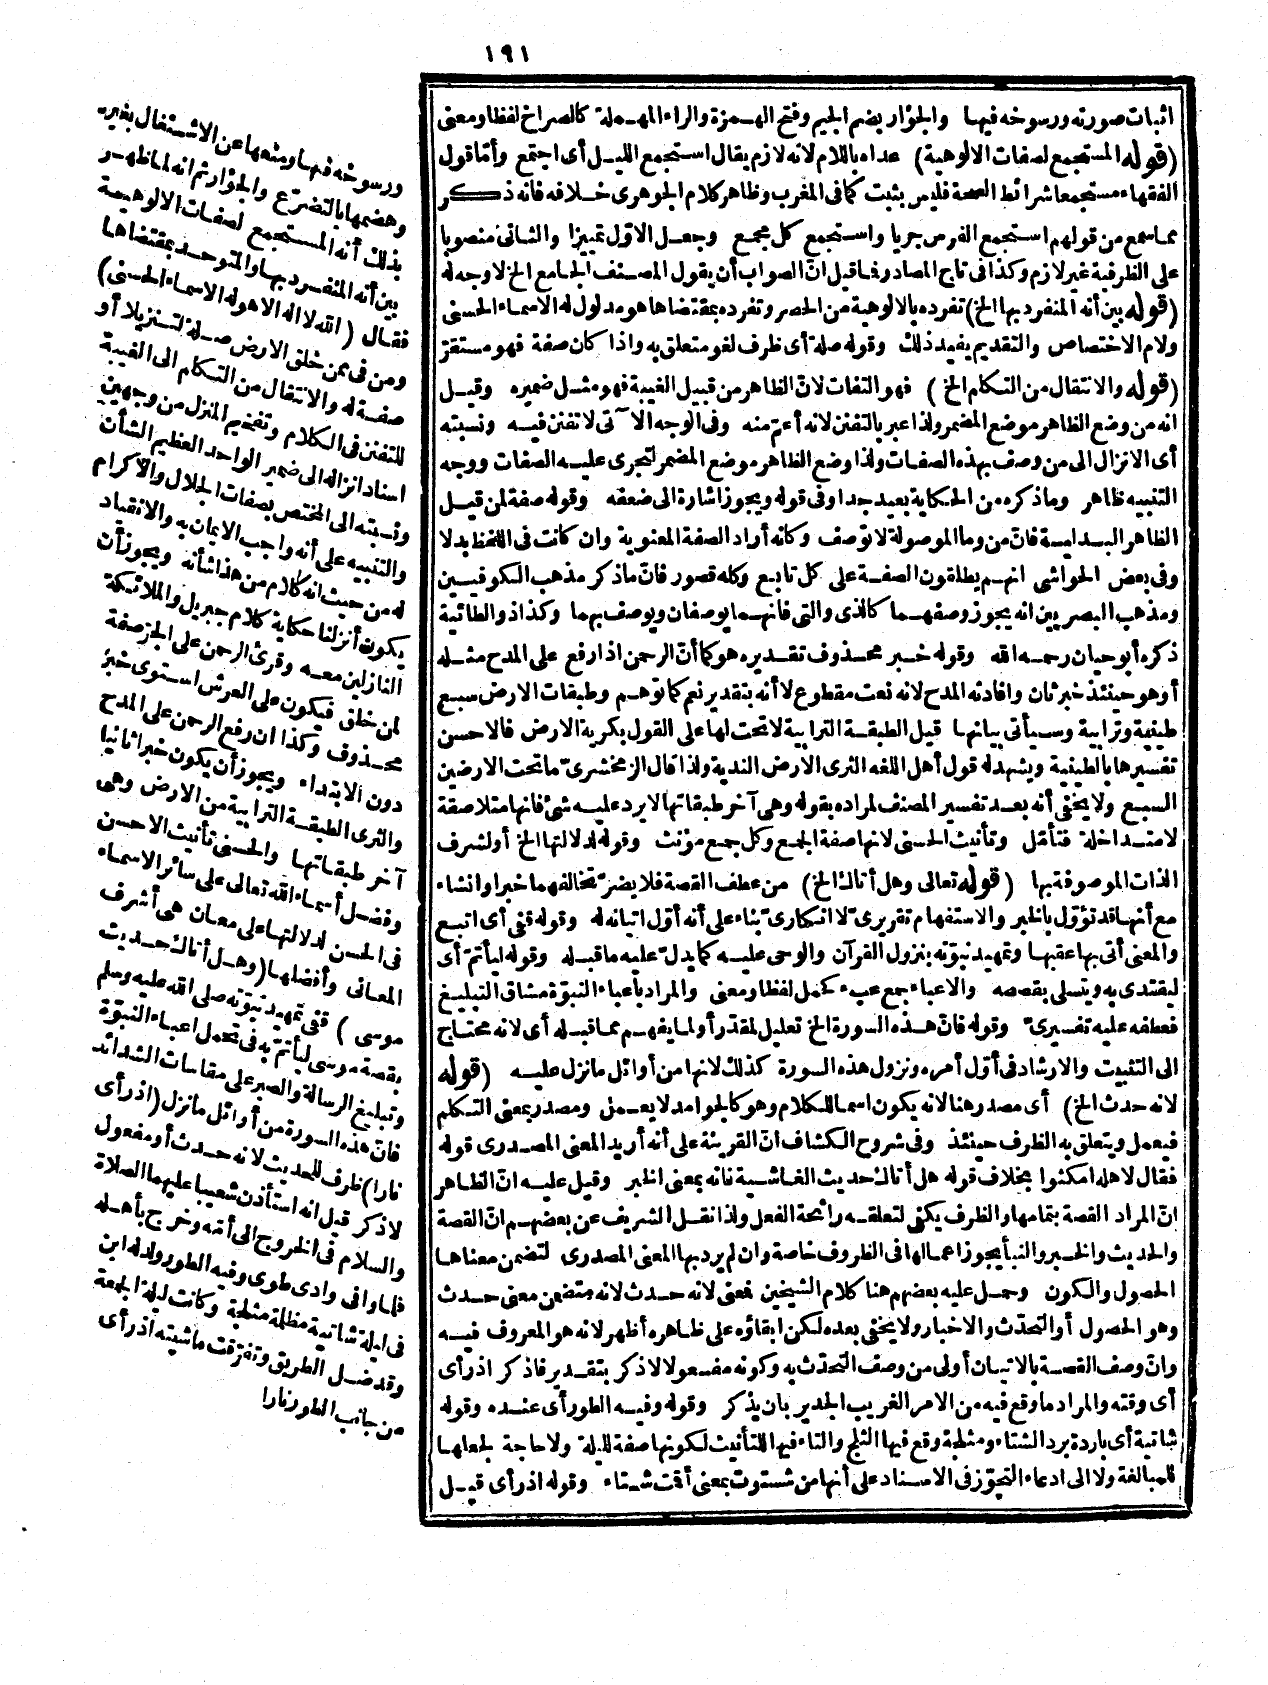 ١٩١
اثبات صورته ورسوخه فيها والجؤار بضم الجيم وفتح الهمزة والراء المهملة كالصراخ لفظا ومعنى
(قوله المستجمع لصفات الالوهية) عداه باللام لانه لازم يقال استجمع الليل أى اجتمع وأمّا قول
الفقهاء مستجمعا شرائط الصحة فليس بثبت كما فى المغرب وظاهر كلام الجوهرى خلافه فانه ذكر
مما سمع من قولهم استجمع الفرس جريا واستجمع كل مجمع وجعل الاوّل تمييزا والثانى منصوبا
على الظرفية غير لازم وكذا فى تاج المصادر فما قيل انّ الصواب أن يقول المصنف الجامع الخ لا وجه له
(قوله بين أنه المنفرد بها الخ) تفرده بالالوهية من الحصر وتفرده بمقتضاها هو مدلول له الاسماء الحسنى
ولام الاختصاص والتقديم يفيد ذلك وقوله صلة أى ظرف لغو متعلق به واذا كان صفة فهو مستقرّ
(قوله والانتقال من التكلم الخ) فهو التفات لانّ الظاهر من قبيل الغيبة فهو مثل ضميره وقيل
انه من وضع الظاهر موضع المضمر ولذا عبر بالتفنن لانه أعمّ منه وفى الوجه الآتى لا تفنن فيه ونسبته
أى الانزال الى من وصف بهذه الصفات ولذا وضع الظاهر موضع المضمر لتجرى عليه الصفات ووجه
التنبيه ظاهر وما ذكره من الحكاية بعيد جدا وفى قوله ويجوز اشارة الى ضعفه وقوله صفة لمن قيل
الظاهر البدلية فانّ من وما الموصولة لا توصف وكأنه أراد الصفة المعنوية وان كانت فى اللفظ بدلا
وفى بعض الحواشى انهم يطلقون الصفة على كل تابع وكله قصور فانّ ما ذكر مذهب الكوفيين
ومذهب البصريين انه يجوز وصفهما كالذى والتى فانهما يوصفان ويوصف بهما وكذا ذو الطائية
ذكره أبو حيان رحمه الله وقوله خبر محذوف تقديره هو كما أنّ الرحمن اذا رفع على المدح مثله
أو هو حينئذ خبر ثان وافادته المدح لانه نعت مقطوع لا أنه بتقدير نعم كما توهم وطبقات الارض سبع
طينية وترابية وسيأتى بيانها قيل الطبقة الترابية لا تحت لها على القول بكرية الارض فالاحسن
تفسيرها بالطينية ويشهد له قول أهل اللغة الثرى الارض الندية ولذا قال الزمخشرىّ ما تحت الارضين
السبع ولا يخفى أنه بعد تفسير المصنف لمراده بقوله وهى آخر طبقاتها لا يرد عليه شئ فانها متلاصقة
لا متداخلة فتأمّل وتأنيث الحسنى لانها صفة الجمع وكل جمع مؤنث وقوله لدلالتها الخ أو لشرف
الذات الموصوفة بها (قوله تعالى وهل أتاك الخ) من عطف القصة فلا يضرّ تخالفهما خبرا وانشاء
مع أنها قد تؤوّل بالخبر والاستفهام تقريرىّ لا انكارىّ بناء على أنه أوّل اتيانه له وقوله قفى أى اتبع
والمعنى أتى بها عقبها وتمهيد نبوّته بنزول القرآن والوحى عليه كما يدلّ عليه ما قبله وقوله ليأتمّ أى
ليقتدى به ويتسلى بقصصه والاعباء جمع عبء كحمل لفظا ومعنى والمراد بأعباء النبوّة مشاق التبليغ
فعطفه عليه تفسيرىّ وقوله فانّ هذه السورة الخ تعليل لمقدّر أو لما يفهم مما قبله أى لانه محتاج
الى التثبيت والارشاد فى أوّل أمره ونزول هذه السورة كذلك لانها من أوائل ما نزل عليه (قوله
لانه حدث الخ) أى مصدر هنا لانه يكون اسما للكلام وهو كالجوامد لا يعمل ومصدر بمعنى التكلم
فيعمل ويتعلق به الظرف حينئذ وفى شروح الكشاف انّ القرينة على أنه أريد المعنى المصدرى قوله
فقال لاهله امكثوا بخلاف قوله هل أتاك حديث الغاشية فانه بمعنى الخبر وقيل عليه انّ الظاهر
انّ المراد القصة بتمامها والظرف يكفى لتعلقه رائحة الفعل ولذا نقل الشريف عن بعضهم انّ القصة
والحديث والخبر والنبأ يجوز اعمالها فى الظروف خاصة وان لم يرد بها المعنى المصدرى لتضمن معناها
الحصول والكون وحمل عليه بعضهم هنا كلام الشيخين فمعنى لانه حدث لانه متضمن معنى حدث
وهو الحصول أو التحدّث والاخبار ولا يخفى بعده لكن ابقاؤه على ظاهره أظهر لانه هو المعروف فيه
وانّ وصف القصة بالاتيان أولى من وصف التحدّث به وكونه مفعولا لاذكر بتقدير فاذكر اذ رأى
أى وقته والمراد ما وقع فيه من الامر الغريب الجدير بان يذكر وقوله وفيه الطور أى عنده وقوله
شاتية أى باردة برد الشتاء ومثلجة وقع فيها الثلج والتاء فيها للتأنيث لكونها صفة لليلة ولا حاجة لجعلها
للمبالغة ولا الى ادعاء التجوّز فى الاسناد على أنها من شتوت بمعنى أقت شتاء وقوله اذ رأى قيل
ورسوخه فيها ومنعها عن الاشتغال بغيره
وهضمها بالتضرّع والجؤار ثم انه لما ظهر
بذلك أنه المستجمع لصفات الالوهية
بين أنه المنفرد بها والمتوحد بمقتضاها
فقال (الله لا اله الا هو له الاسماء الحسنى)
ومن فى ممن خلق الارض صلة لتنزيلا أو
صفة له والانتقال من التكلم الى الغيبة
للتفنن فى الكلام وتفخيم المنزل من وجهين
اسناد انزاله الى ضمير الواحد العظيم الشأن
ونسبته الى المختص بصفات الجلال والاكرام
والتنبيه على أنه واجب الايمان به والانقياد
له من حيث انه كلام من هذا شأنه ويجوز أن
يكون أنزلنا حكاية كلام جبريل والملائكة
النازلين معه وقرئ الرحمن على الجرّ صفة
لمن خلق فيكون على العرش استوى خبر
محذوف وكذا ان رفع الرحمن على المدح
دون الابتداء ويجوز أن يكون خبرا ثانيا
والثرى الطبقة الترابية من الارض وهى
آخر طبقاتها والحسنى تأنيث الاحسن
وفضل أسماء الله تعالى على سائر الاسماء
فى الحسن لدلالتها على معان هى أشرف
المعانى وأفضلها (وهل أتاك حديث
موسى) قفى تمهيد نبوّته صلى الله عليه وسلم
بقصة موسى ليأتمّ به فى تحمل اعباء النبوّة
وتبليغ الرسالة والصبر على مقاسات الشدائد
فانّ هذه السورة من أوائل ما نزل (اذ رأى
نارا) ظرف للحديث لانه حدث أو مفعول
لاذكر قيل انه استأذن شعيبا عليهما الصلاة
والسلام فى الخروج الى أمّه وخرج بأهله
فلما وافى وادى طوى وفيه الطور ولد له ابن
فى ليلة شاتية مظلمة مثلجة وكانت ليلة الجمعة
وقد ضل الطريق وتفرّقت ماشيته اذ رأى
من جانب الطور نارا